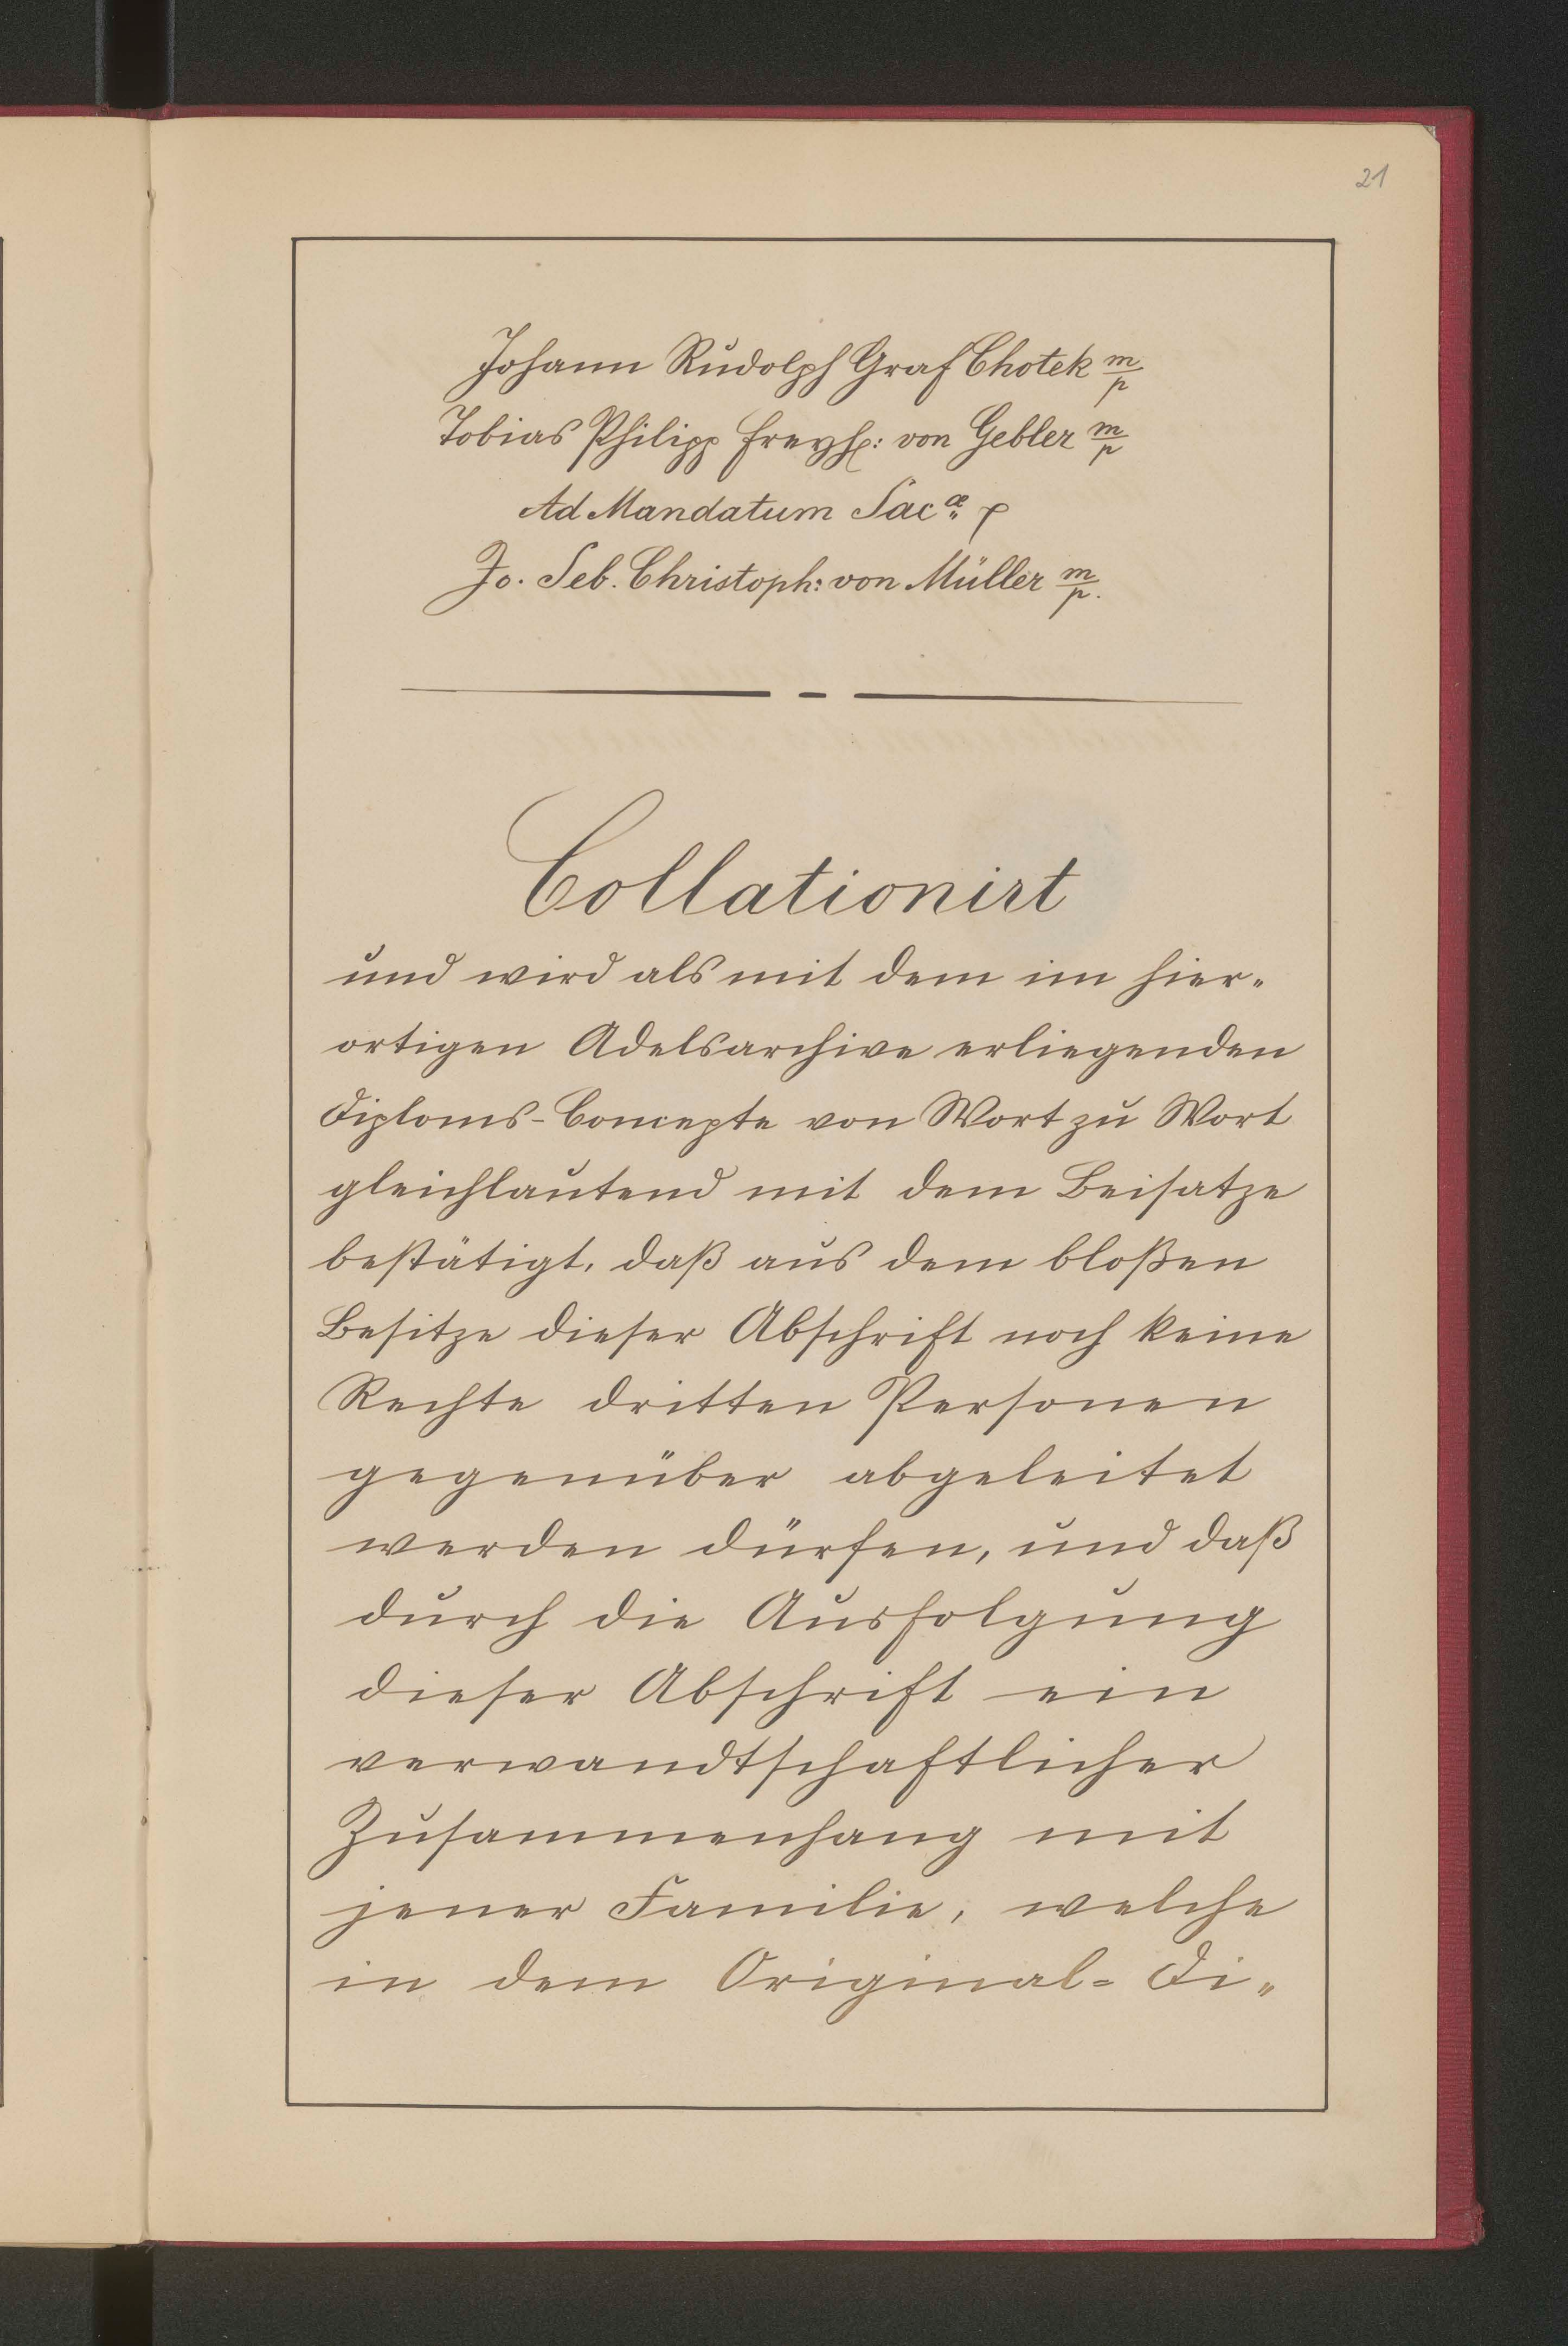 21
Johann Rudolph Graf Chotek m/p
Tobias Philipp Freyh: von Gebler m/p
Ad Mandatum Sacæ p
Jo. Seb. Christoph: von Müller m/p.
Collationirt
und wird als mit dem im hier„
ortigen Adelsarchive erliegenden
Diploms-Concepte von Wort zu Wort
gleichlautend mit dem Beisatze
bestätigt, daß aus dem bloßen
Besitze dieser Abschrift noch keine
Rechte dritten Personen
gegenüber abgeleitet
werden dürfen, und daß
durch die Ausfolgung
dieser Abschrift ein
verwandtschaftlicher
Zusammenhang mit
jener Familie, welche
in dem Original= Di„